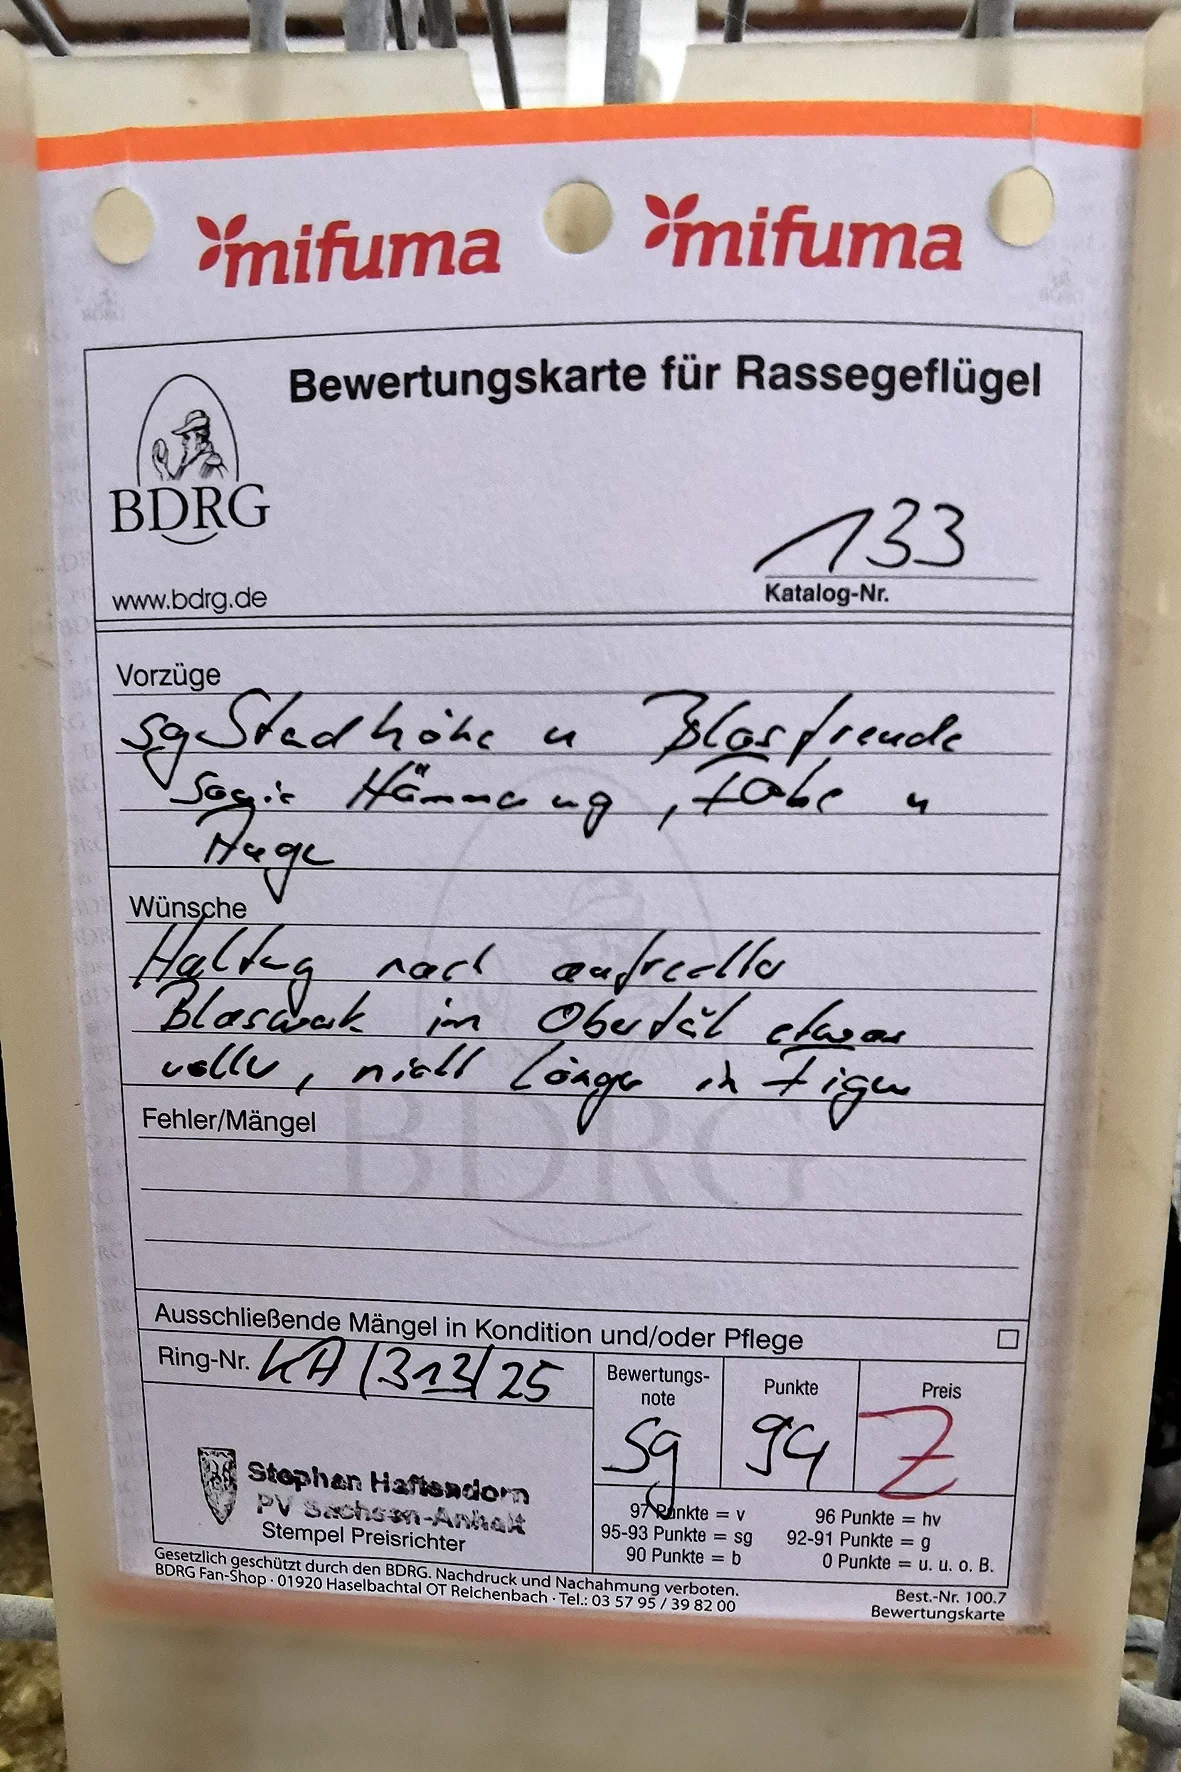 mifuma mifuma
Bewertungskarte für Rassegeflügel
BDRG
133
Katalog-Nr.
www.bdrg.de
Vorzüge
sg Standhöhe u Blasfreude
sowie Hämmerung, Farbe u
Auge
Wünsche
Haltung noch aufrechter
Blaswerk im Oberteil etwas
voller, nicht länger in Figur
Fehler/Mängel
BDRG
Ausschließende Mängel in Kondition und/oder Pflege
Ring-Nr. KA/313/25
Bewertungs-
note
Punkte
Preis
sg 94 Z
Stephan Haftendorn
PV Sachsen-Anhalt
Stempel Preisrichter
97 Punkte = v 96 Punkte = hv
95-93 Punkte = sg 92-91 Punkte = g
90 Punkte = b 0 Punkte = u. u. o. B.
Gesetzlich geschützt durch den BDRG. Nachdruck und Nachahmung verboten.
BDRG Fan-Shop · 01920 Haselbachtal OT Reichenbach · Tel.: 03 57 95 / 39 82 00
Best.-Nr. 100.7
Bewertungskarte